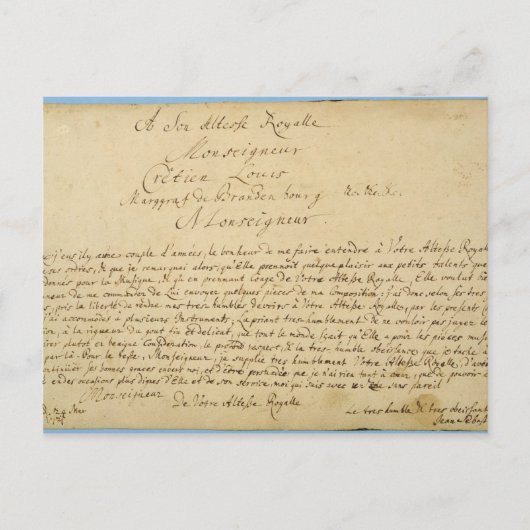 A Son Altesse Royalle
Monseigneur
Crêtien Louis
Marggraf de Brandenbourg &c. &c. &c.
Monseigneur.
j'eus il y a une couple d'années, le bonheur de me faire entendre à Votre Altesse Royalle
ses ordres, & que je remarquai alors, qu'Elle prennoit quelque plaisir aux petits talents que
donnés pour la Musique, & qu'en prennant Conge de Votre Altesse Royalle, Elle voulut bien
neur de me commander de Lui envoyer quelques pieces de ma Composition: j'ai donc selon ses tres
pris la liberté de rendre mes tres-humbles devoirs à Votre Altesse Royalle, par les presents
j'ai accommodés à plusieurs Instruments; La priant tres-humblement de ne vouloir pas juger
à la rigueur du gout fin et delicat, que tout le monde sçait qu'Elle a pour les piéces
tirer plutot en benigne Consideration, le profond respect, & la tres-humble obeissance que je tache à
par là. Pour le reste, Monseigneur, je supplie tres humblement Votre Altesse Royalle, d'avoir
continüer ses bonnes graces envers moi, et d'être persuadèe que je n'ai rien tant à coeur, que de pouvoir
en des occasions plus dignes d'Elle et de son service, moi qui suis avec un zele sans pareil
Monseigneur
De Votre Altesse Royalle
Le tres humble & tres obeissant
Jean Sebast